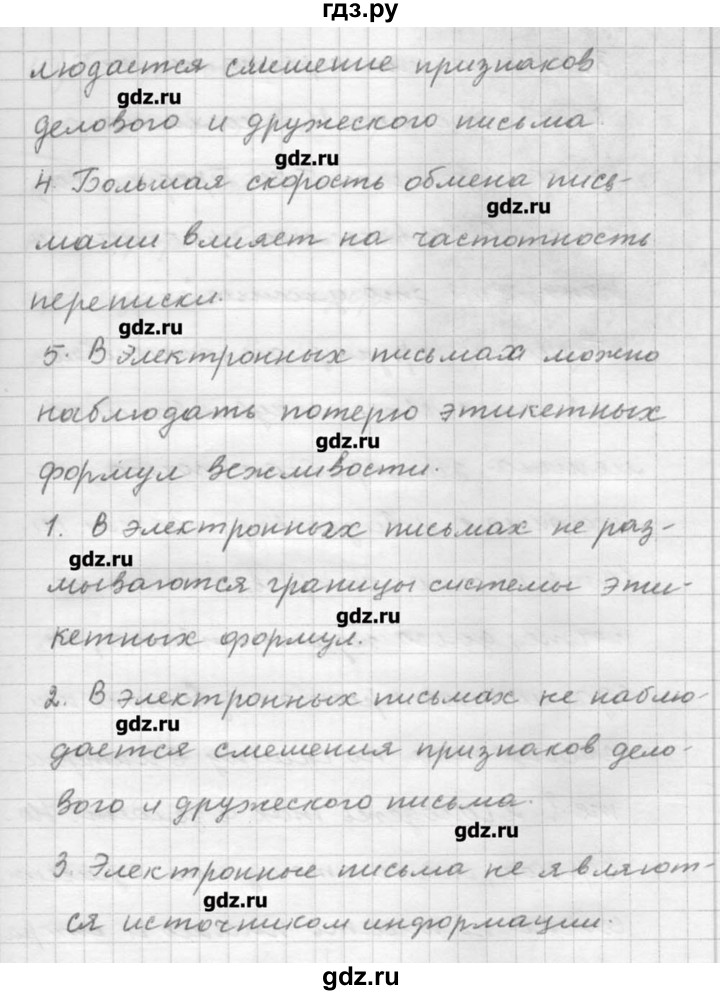 гдз.ру
людается смешение признаков
gdz.ru
делового и дружеского письма
gdz.ru
4. Большая скорость обмена пись-
gdz.ru
мами влияет на частотность
переписки.
gdz.ru
5. В электронных письмах можно
наблюдать потерю этикетных
gdz.ru
формул вежливости.
1. В электронных письмах не раз-
gdz.ru
мываются границы системы эти-
gdz.ru
кетных формул.
2. В электронных письмах не наблю-
gdz.ru
дается смешения признаков дело-
вого и дружеского письма.
gdz.ru
3. Электронные письма не являют-
gdz.ru
ся источником информации.
gdz.ru